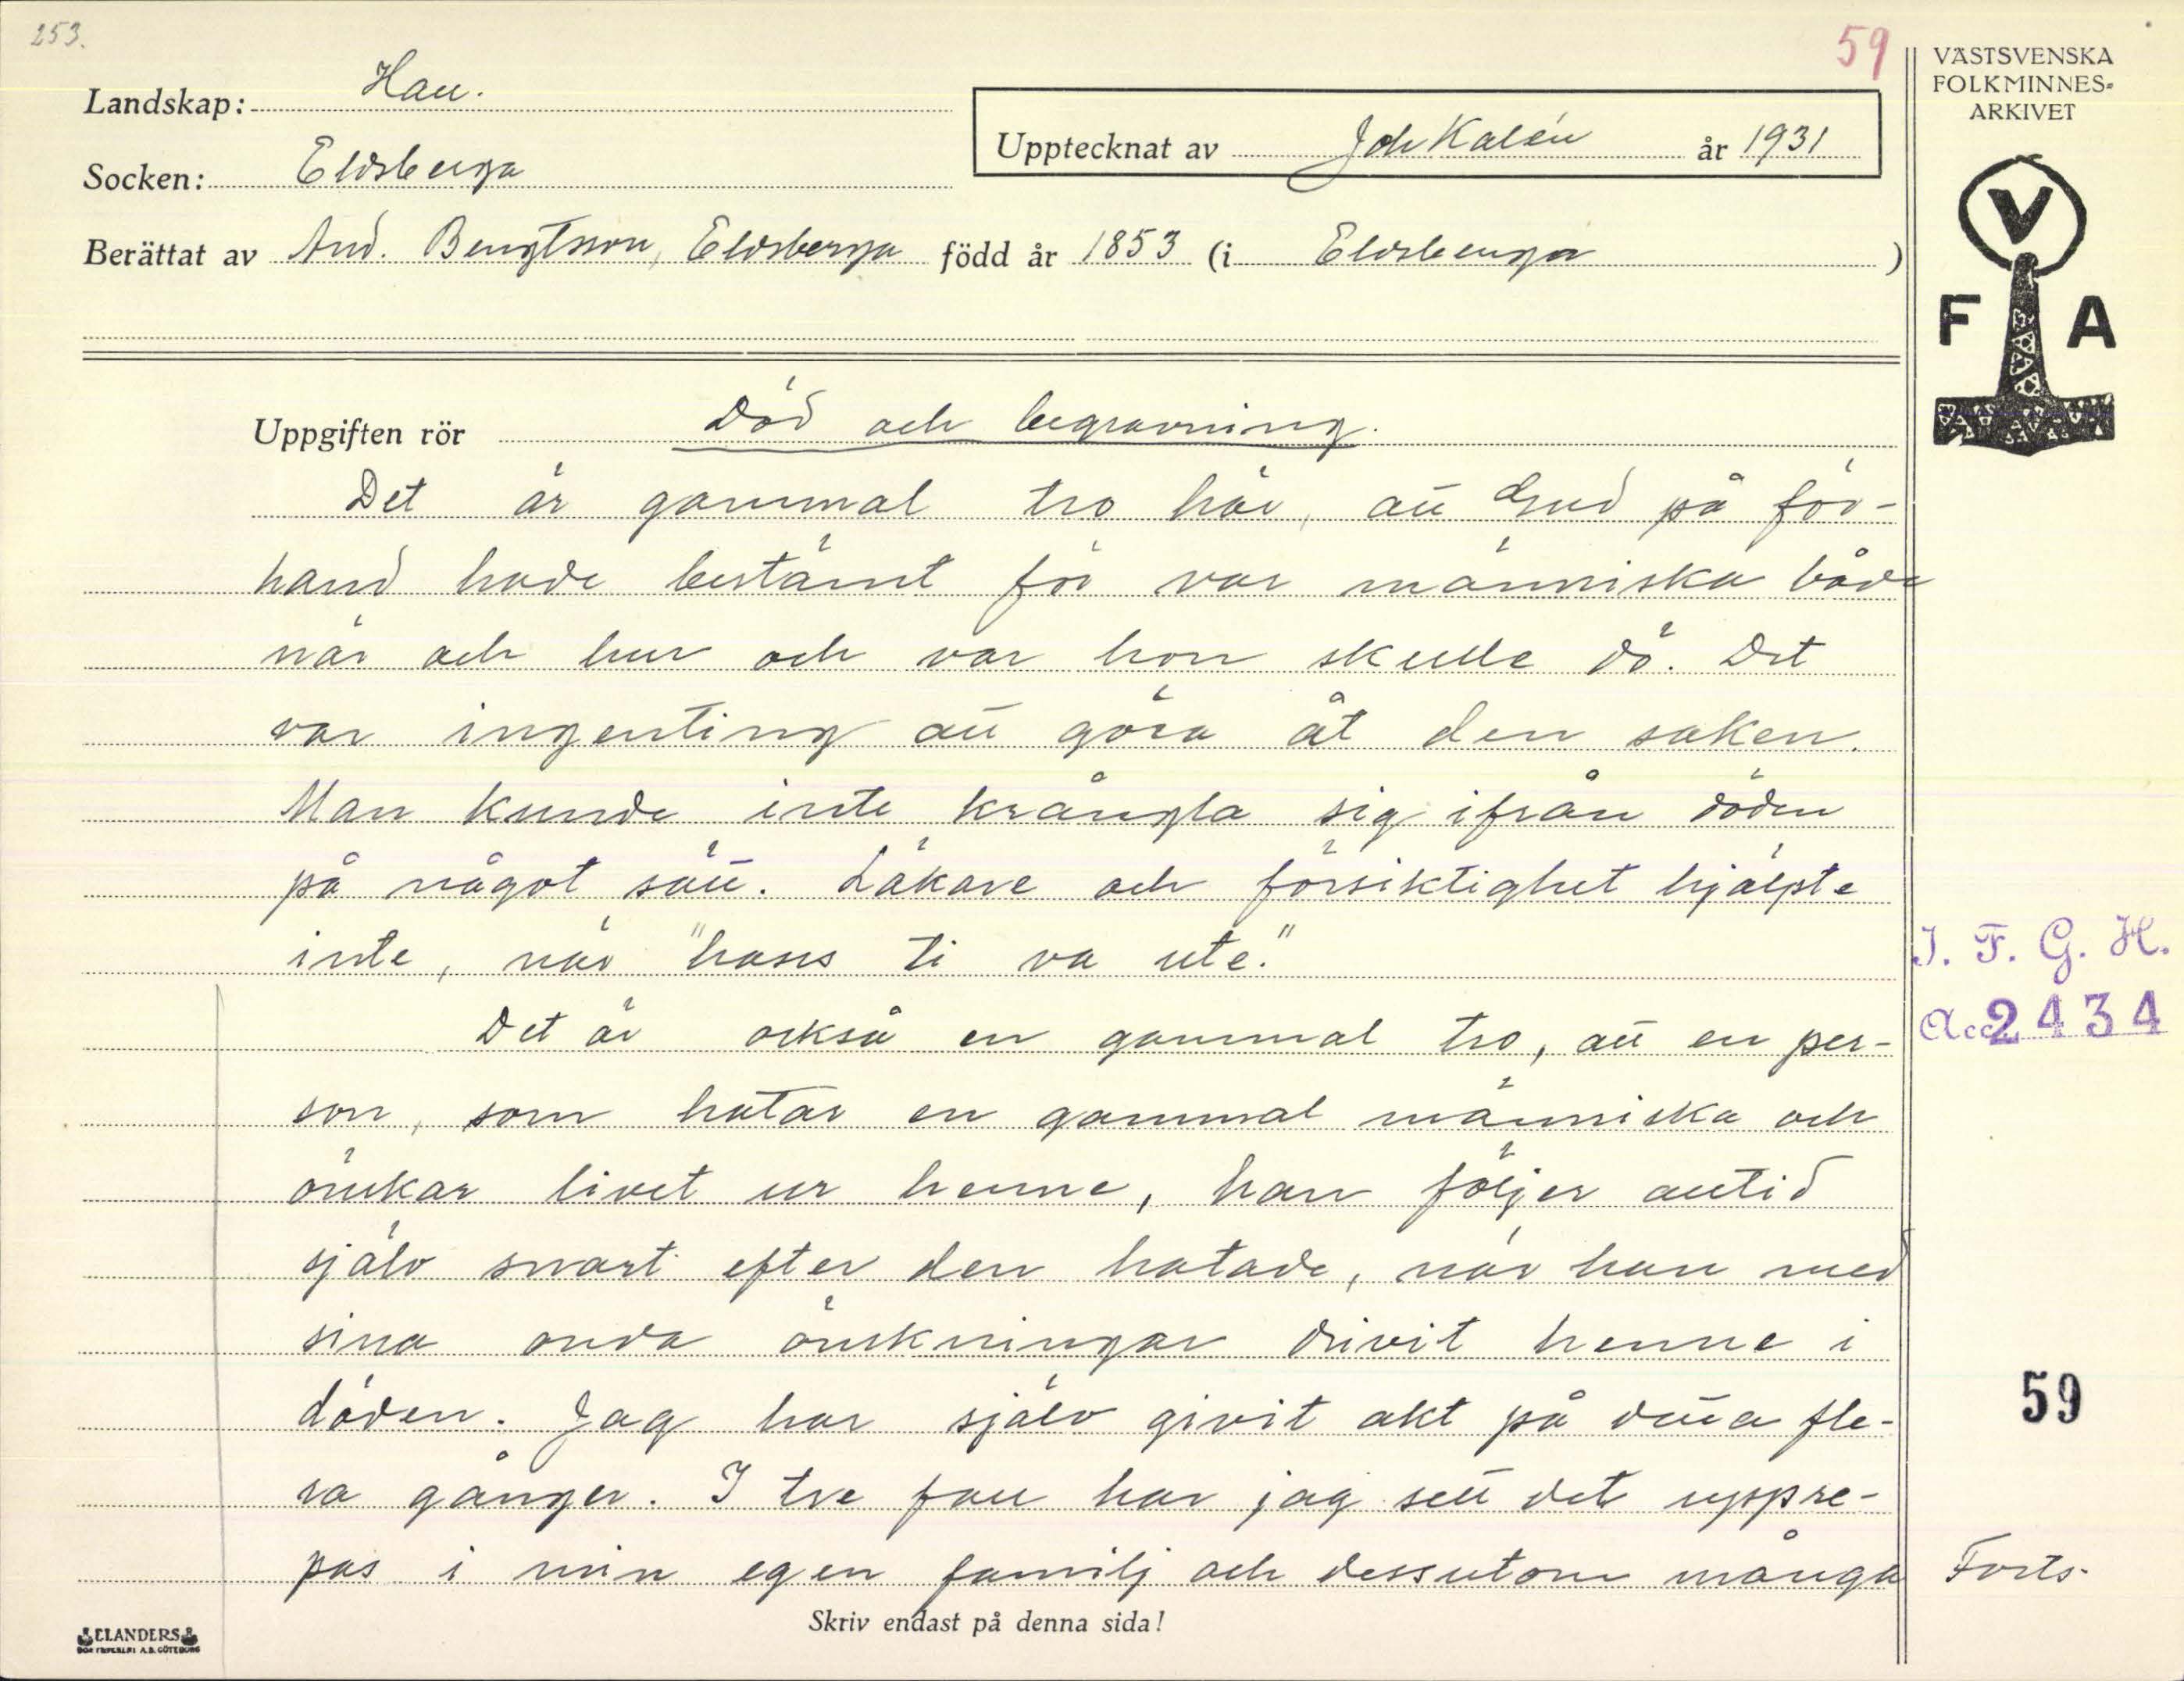 253.
59
VÄSTSVENSKA
FOLKMINNES-
ARKIVET
Landskap: Hall.
Upptecknat av Joh Kalén år 1931
Socken: Eldsberga
Berättat av And. Bengtsson, Eldsberga född år 1853 (i Eldsberga)
V
F A
Uppgiften rör Död och begravning.
Det är gammal tro här, att Gud på för-
hand hade bestämt för var människa både
när och hur och var hon skulle dö. Det
var ingenting att göra åt den saken.
Man kunde inte krångla sig ifrån döden
på något sätt. Läkare och försiktighet hjälpte
inte, när "hans ti va ute."
Det är också en gammal tro, att en per-
son, som hatar en gammal människa och
önskar livet ur henne, han följer alltid
själv snart efter den hatade, när han med
sina onda önskningar drivit henne i
döden. Jag har själv givit akt på detta fle-
ra gånger. I tre fall har jag sett det uppre-
pas i min egen familj och dessutom många
Forts.
I. F. G. H.
Acc. 2434
59
Skriv endast på denna sida!
ELANDERS
BOKTRYCKERI A.B. GÖTEBORG